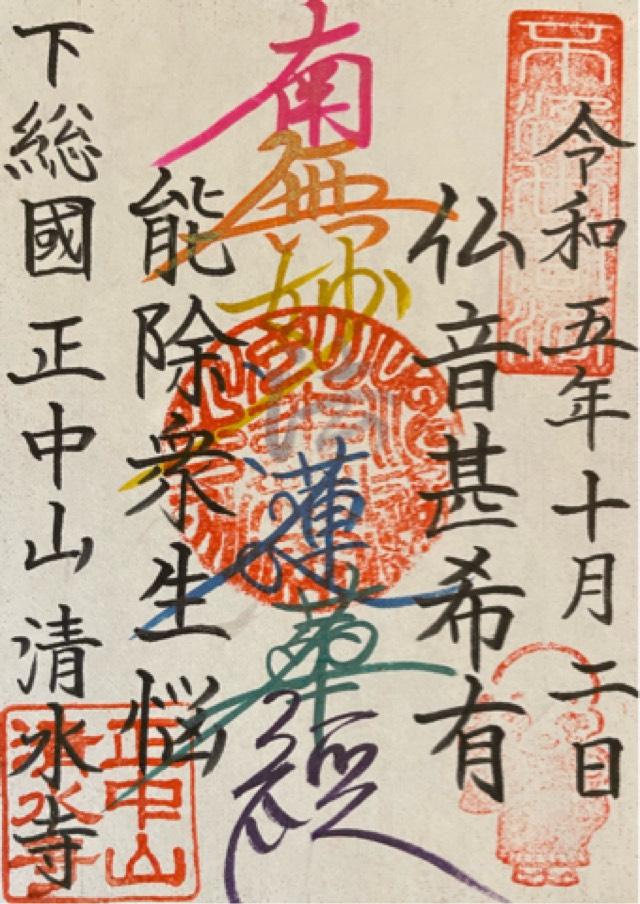 令和五年十月二日
仏音甚希有
南無妙法蓮華経
能除衆生悩
下総國 正中山 清水寺
正中山
清水寺